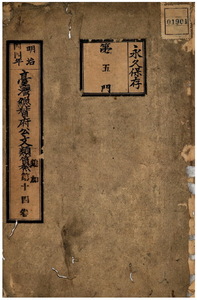 永久保存
第五門
明治
四年
臺灣總督府公文類纂
第十四卷
01901